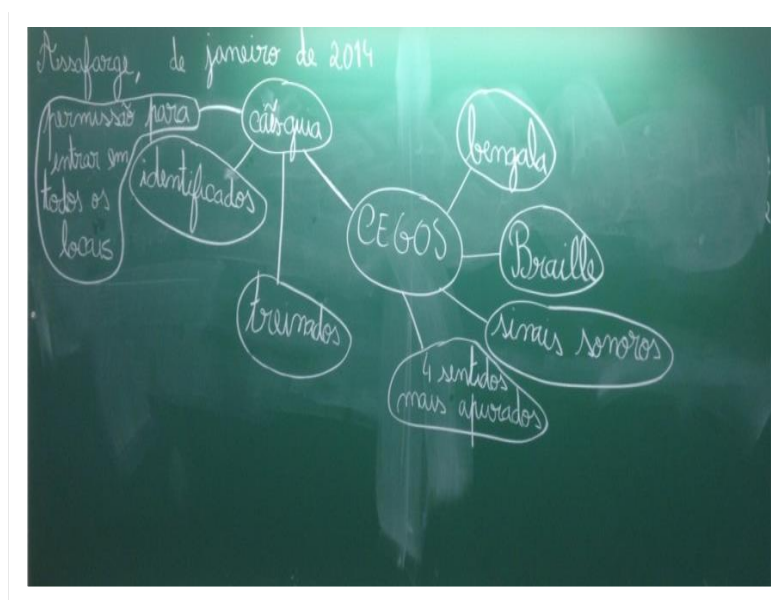 Assafarge, de janeiro de 2014
permissão para
entrar em
todos os
locais
cães guia
identificados
treinados
CEGOS
bengala
Braille
sinais sonoros
4 sentidos
mais apurados